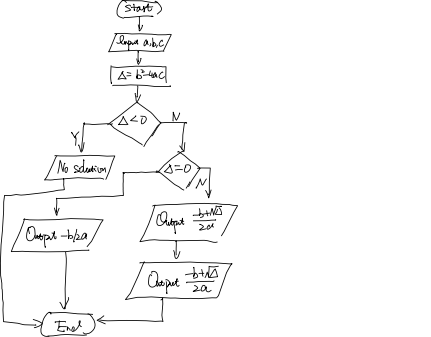 Start
Input a,b,c
Δ=b²-4ac
Δ<0
Y
N
No solution
Δ=0
N
Output -b/2a
Output (-b+√Δ)/2a
Output (-b+√Δ)/2a
End